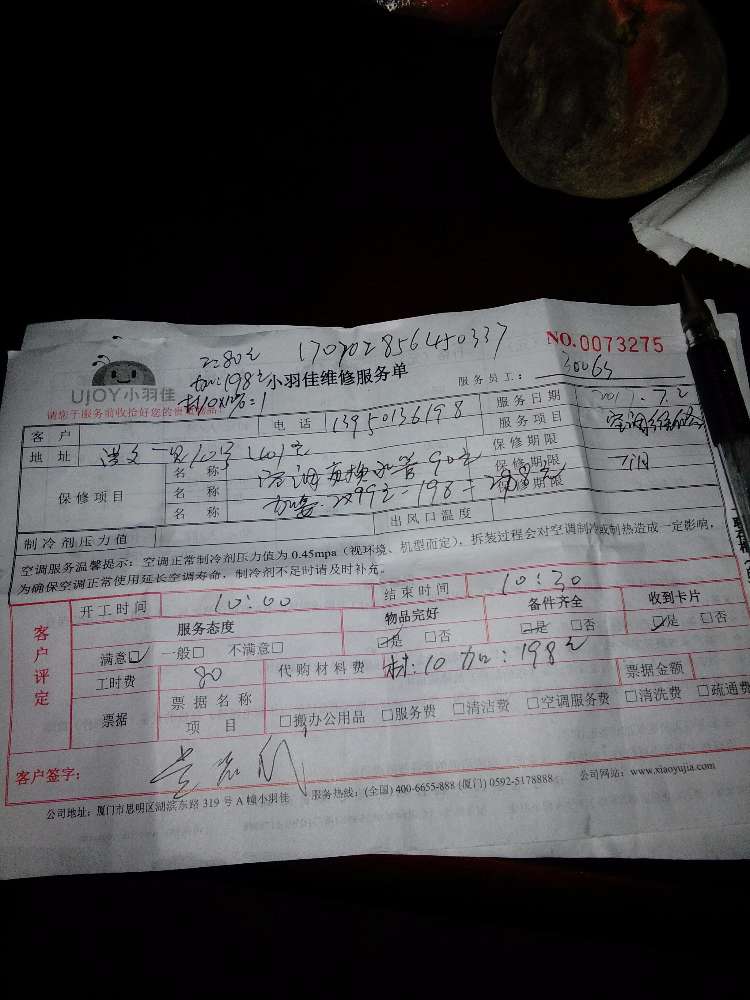 170702856450337
2:80元
加:198元
NO.0073275
UJOY小羽佳
小羽佳维修服务单
服务员工:
30065
请您于服务前收拾好您的贵重物品!
客 户
电 话
13950136198
服务日期
地 址
服务项目
保修项目
名 称
90元
保修期限
名 称
2x99元=198
保修期限
名 称
保修期限
制冷剂压力值
出风口温度
空调服务温馨提示:空调正常制冷剂压力值为 0.45mpa(视环境、机型而定),拆装过程会对空调制冷或制热造成一定影响,
为确保空调正常使用延长空调寿命,制冷剂不足时请及时补充。
客户评定
开工时间
10:00
结束时间
10:30
服务态度
物品完好
备件齐全
收到卡片
满意□ 一般□ 不满意□
□是 □否
□是 □否
□是 □否
工时费
80
代购材料费
材:10 加:198元
票据
票据名称
票据金额
项 目
□搬办公用品 □服务费 □清洁费 □空调服务费 □清洗费 □疏通费
客户签字:
公司地址:厦门市思明区湖滨东路 319 号 A 幢小羽佳 服务热线:(全国) 400-6655-888 (厦门) 0592-5178888 公司网站:www.xiaoyujia.com